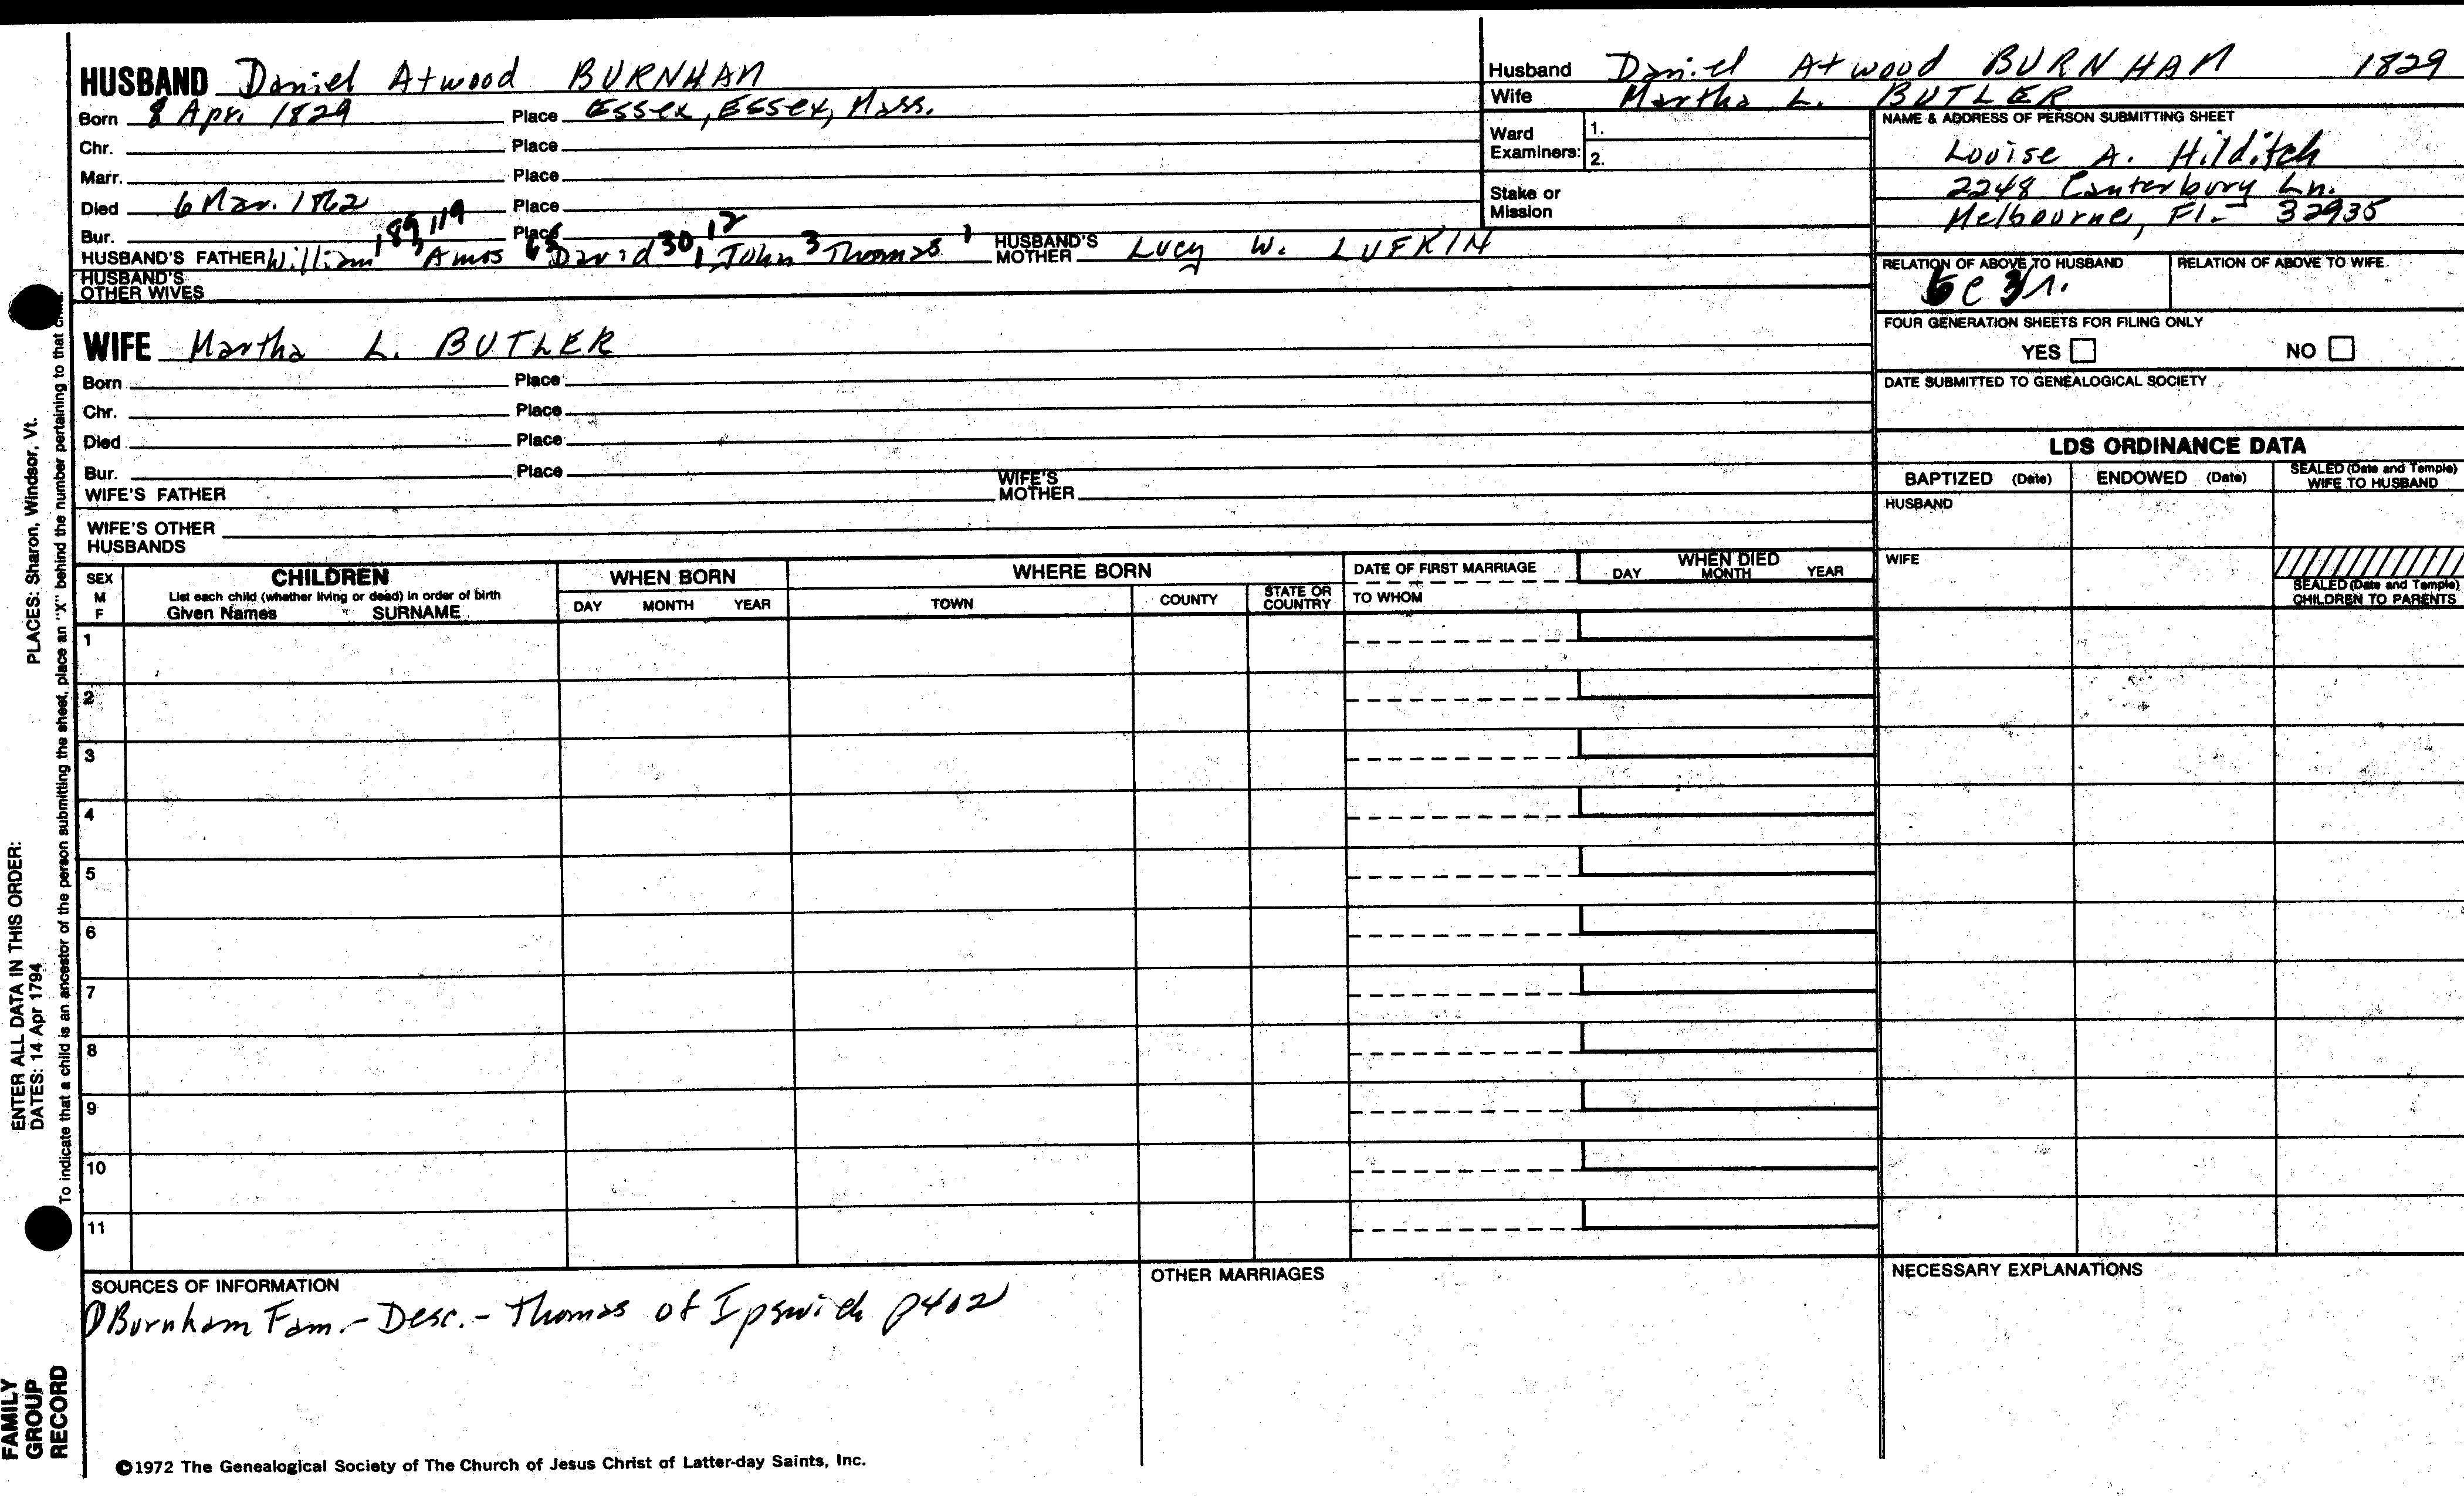 HUSBAND Daniel Atwood BURNHAM
Born 8 Apr. 1829 Place Essex, Essex, Mass.
Chr. Place
Marr. Place
Died 6 Mar. 1862 Place
Bur. Place
HUSBAND'S FATHER William 189, 119 Amos 63 David 30, 12 John 3 Thomas 1 HUSBAND'S MOTHER Lucy W. LUFKIN
HUSBAND'S OTHER WIVES
WIFE Martha L. BUTLER
Born Place
Chr. Place
Died Place
Bur. Place
WIFE'S FATHER WIFE'S MOTHER
WIFE'S OTHER HUSBANDS
Husband Daniel Atwood BURNHAM 1829
Wife Martha L. BUTLER
Ward Examiners: 1.
2.
Stake or Mission
NAME & ADDRESS OF PERSON SUBMITTING SHEET
Louise A. Hilditch
2248 Canterbury Ln.
Melbourne, Fl- 32935
RELATION OF ABOVE TO HUSBAND RELATION OF ABOVE TO WIFE
5c 3r.
FOUR GENERATION SHEETS FOR FILING ONLY
YES NO
DATE SUBMITTED TO GENEALOGICAL SOCIETY
LDS ORDINANCE DATA
BAPTIZED (Date) ENDOWED (Date) SEALED (Date and Temple) WIFE TO HUSBAND
HUSBAND
WIFE
SEALED (Date and Temple) CHILDREN TO PARENTS
SEX M F CHILDREN
List each child (whether living or dead) in order of birth
Given Names SURNAME
WHEN BORN
DAY MONTH YEAR
WHERE BORN
TOWN COUNTY STATE OR COUNTRY
DATE OF FIRST MARRIAGE
TO WHOM
WHEN DIED
DAY MONTH YEAR
1
2
3
4
5
6
7
8
9
10
11
SOURCES OF INFORMATION
① Burnham Fam.- Desc.- Thomas of Ipswich p402
OTHER MARRIAGES
NECESSARY EXPLANATIONS
©1972 The Genealogical Society of The Church of Jesus Christ of Latter-day Saints, Inc.
FAMILY
GROUP
RECORD
ENTER ALL DATA IN THIS ORDER:
DATES: 14 Apr 1794 PLACES: Sharon, Windsor, Vt.
To indicate that a child is an ancestor of the person submitting the sheet, place an "X" behind the number pertaining to that